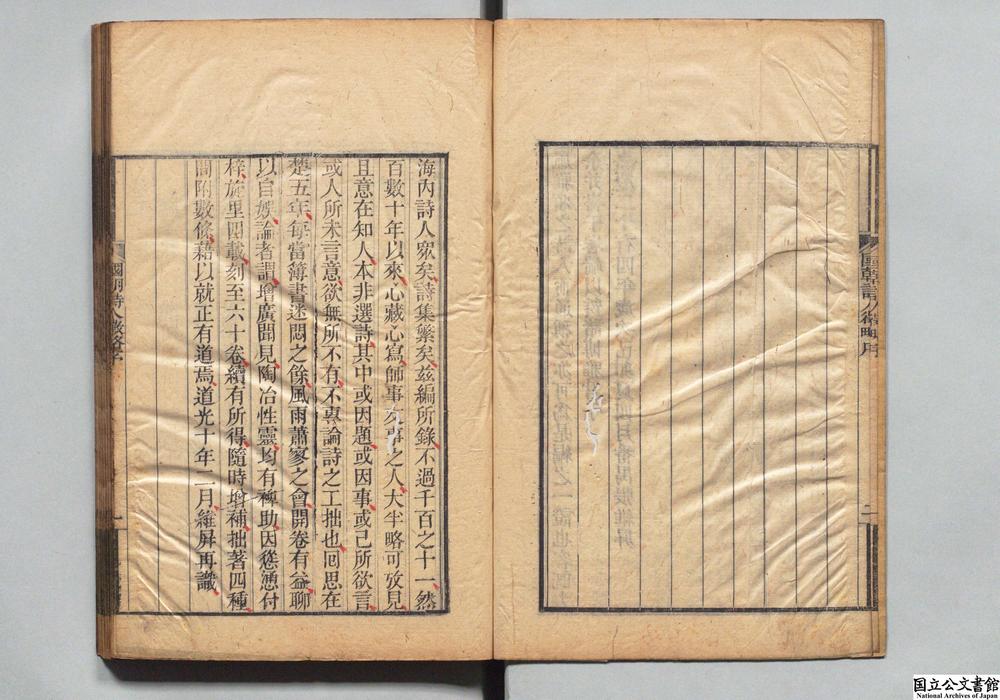 海內詩人衆矣詩集繁矣茲編所錄不過千百之十一然
百數十年以來心藏心寫師事友事之人大半略可攷見
且意在知人本非選詩其中或因題或因事或己所欲言
或人所未言意欲無所不有不專論詩之工拙也囘思在
楚五年每當簿書迷悶之餘風雨蕭寥之會開卷有益聊
以自娛論者謂增廣聞見陶冶性靈均有裨助因慫慂付
梓旋里四載刻至六十卷續有所得隨時增補拙著四種
間附數條藉以就正有道焉道光十年二月維屛再識
國朝詩人徵略序
一
國朝詩人徵略序
二
国立公文書館
National Archives of Japan